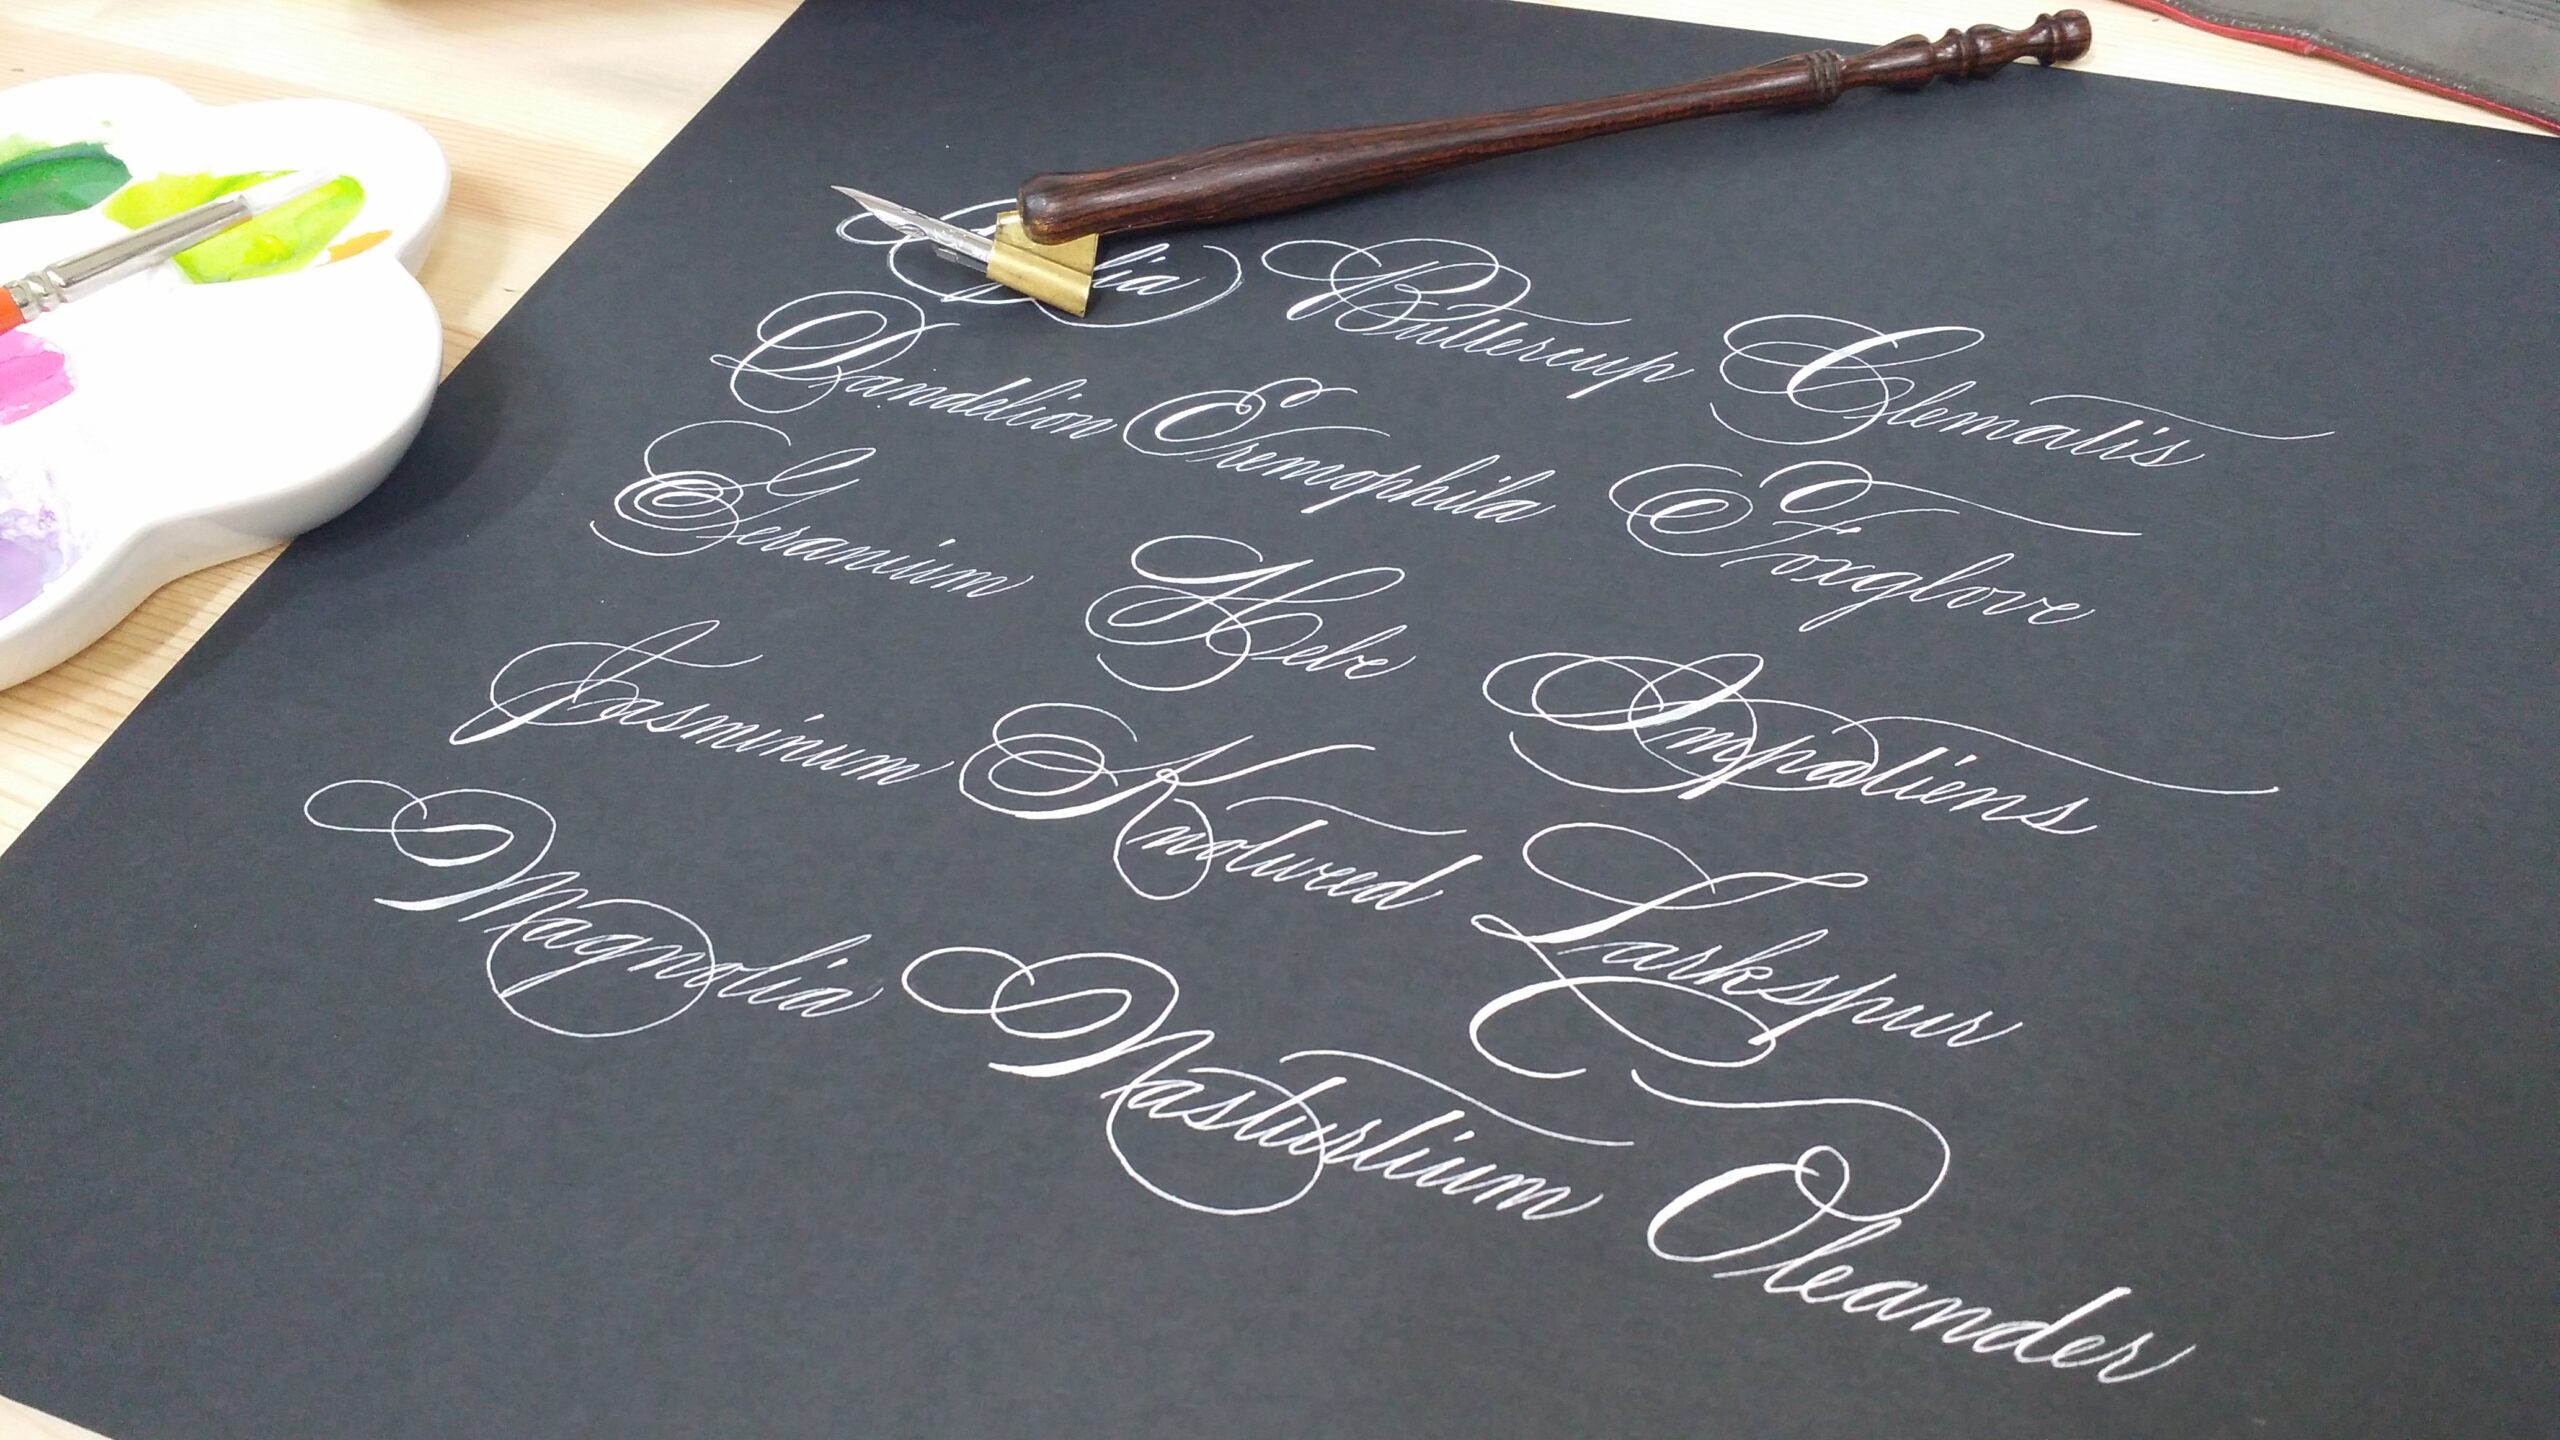 Buttercup Clematis
Dandelion Eremophila Foxglove
Geranium Hebe Impatiens
Jasminum Knotweed Larkspur
Magnolia Nasturtium Oleander